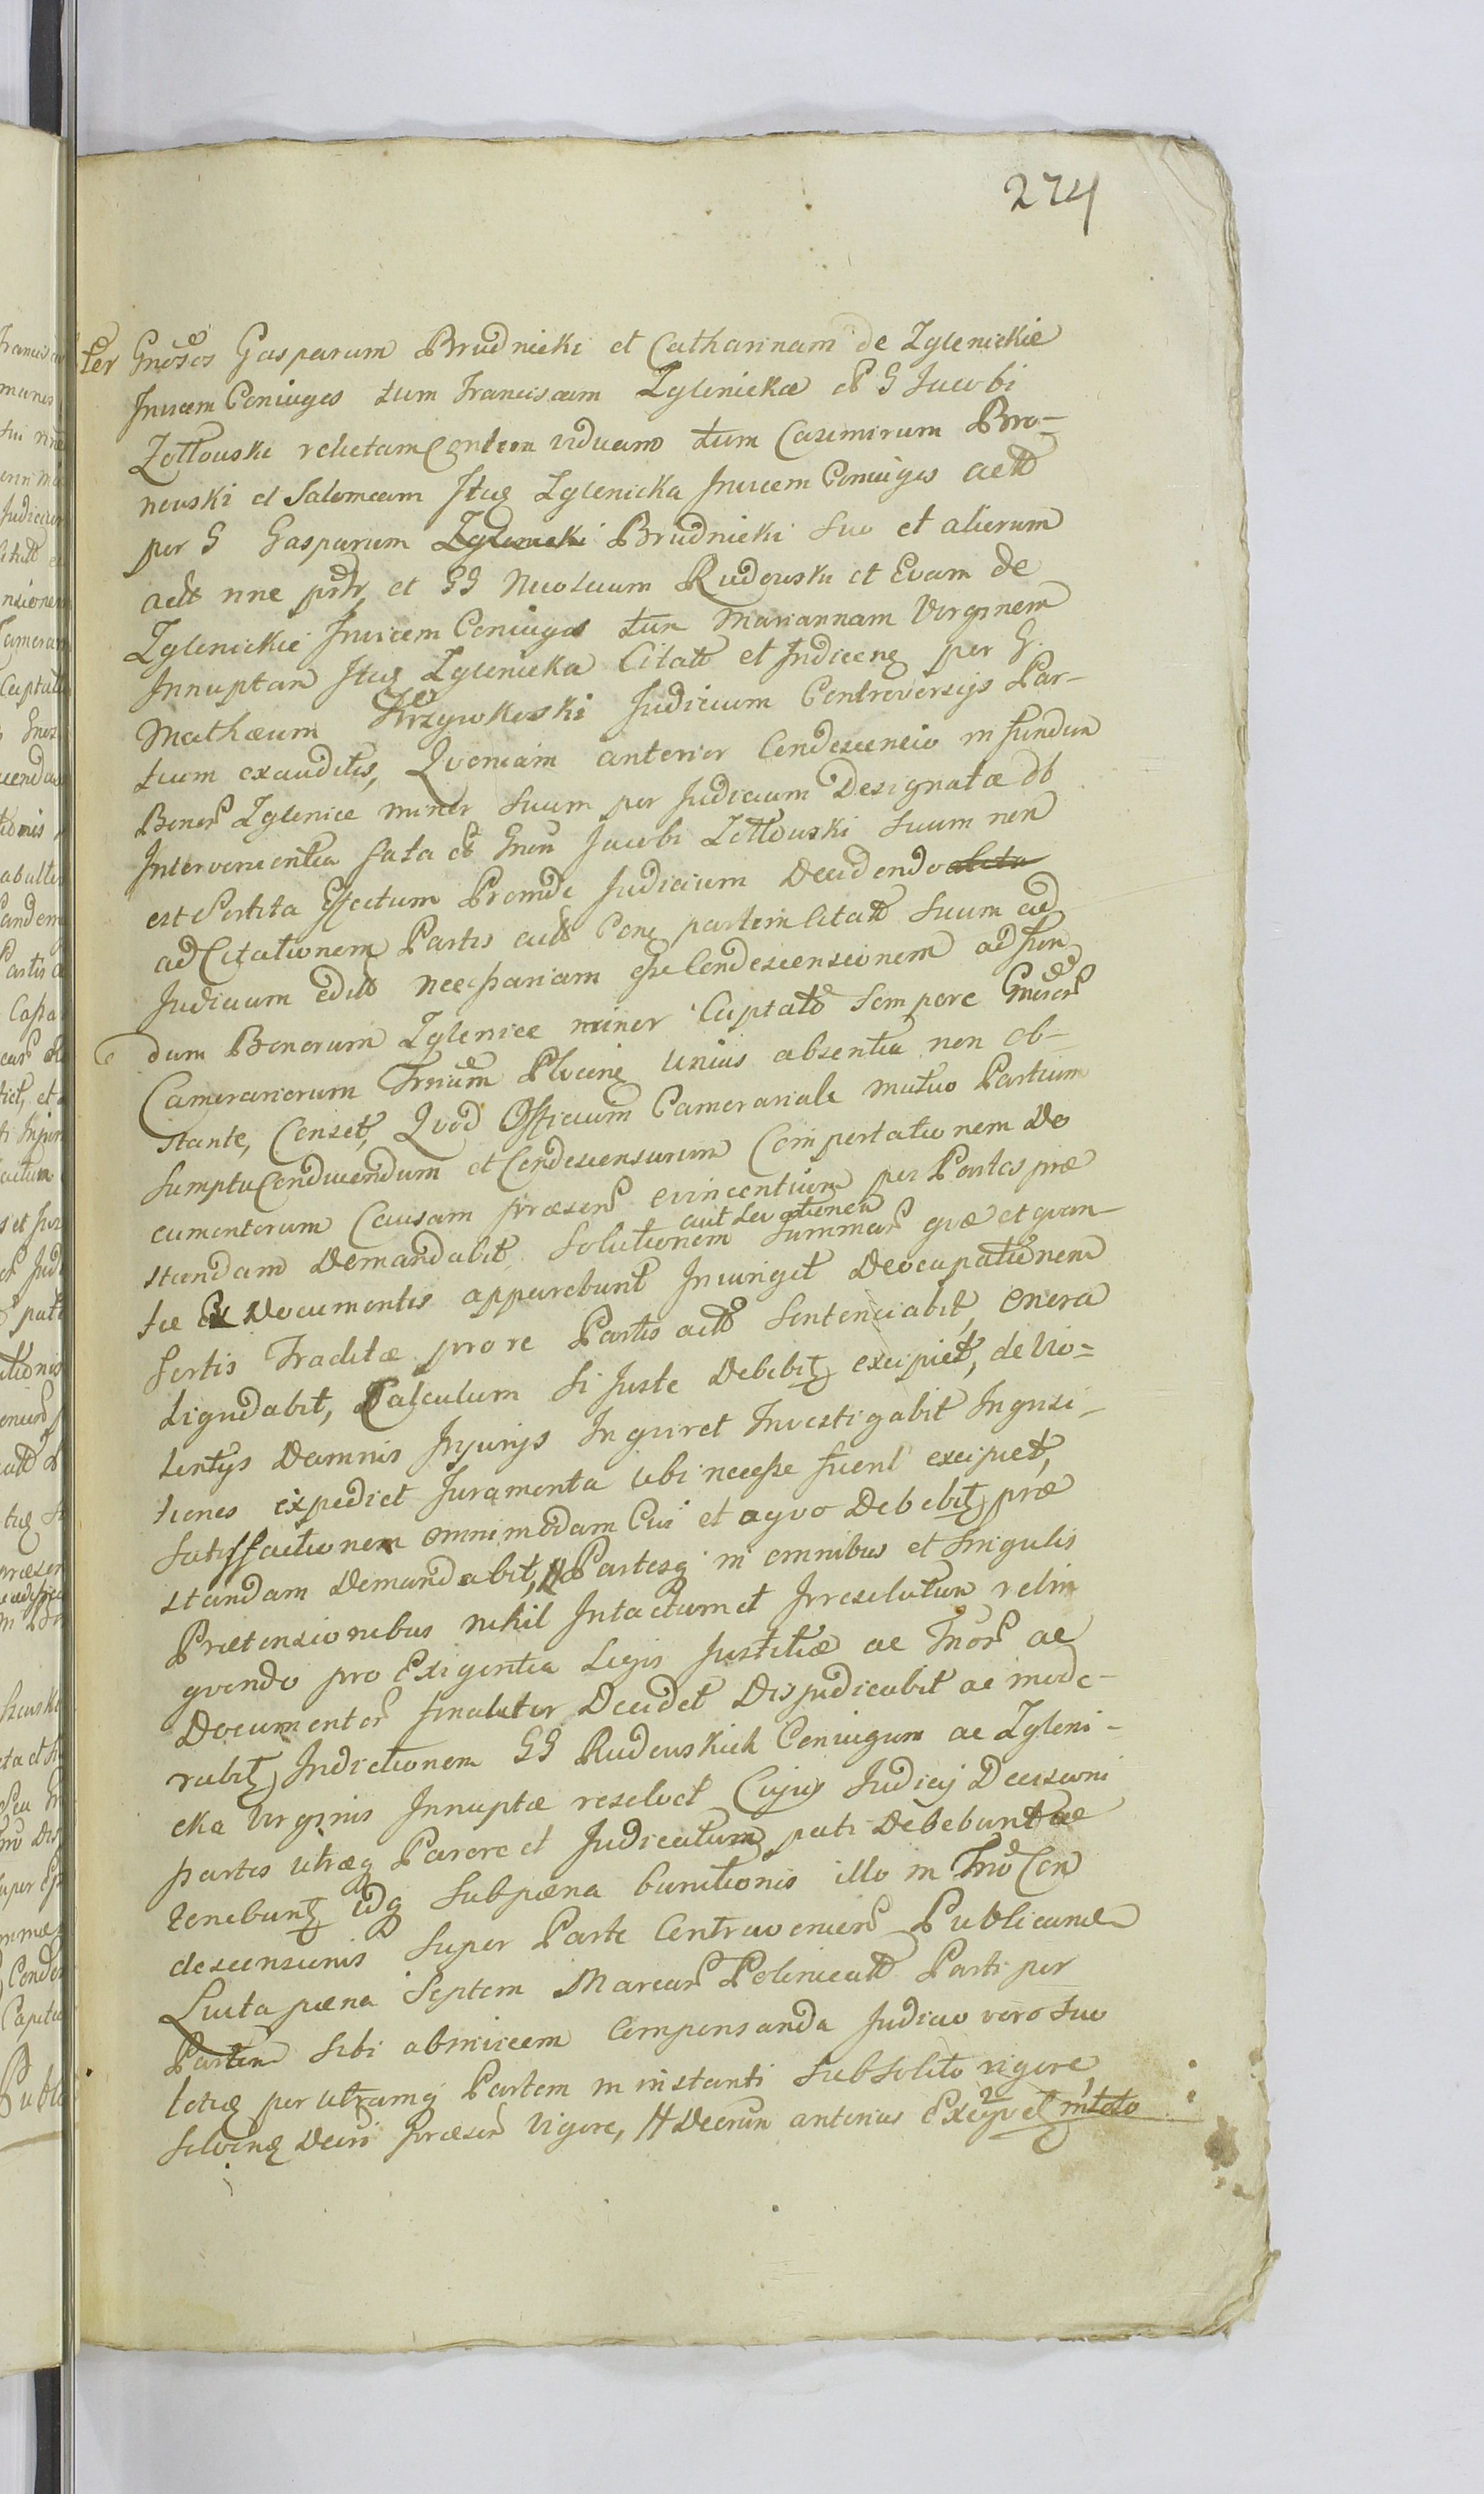 274
ter Gnosos Gasparum Brudnicki et Catharinam de Zglenickie
Invicem Coniuges tum Franciscam Zglenicka et G Jacobi
Zołtowski relictam Contem viduam tum Casimirum Bro-
nowski et Salomeam Itq Zglenicka Invicem Coniuges actt
per G Gasparum Zglenicki Brudnicki suo et aliorum
actt nne pntr, et GG Nicolaum Rudowski et Evam de
Zglenickie Invicem Coniuges tum Mariannam Virginem
Innuptam Itq Zglenicka Citatt et Indicenq per G.
Mathæum Krzywkoski Judicium Controversijs Par-
tium exauditis, Qvoniam anterior Condescencio in fundum
Bonor Zglenice minor suum per Judicium Designatæ ob
Intervenientia fata et Gnu Jacobi Zołtowski suum non
est sortita Effectum Proinde Judicium Decidendo
ad Citationem Partis actt Conq partem Citatt suum ad
Judicium editt necessariam esse Condescensionem ad fun
dum Bonorum Zglenice minor Captato tempore Gnosor
Camerariorum Trnium Plocenq unius absentia non ob-
stante, Censet, Qvod Officium Camerariale mutuo Partium
sumptu Conducendum et Condescensurum Comportationem Do
cumentorum Causam præsen evincentium per Partes præ
standam Demandabit Solutionem aut Levationem Summar qvæ et qvan-
tæ Ex Documentis apparebunt Iniunget Deocupationem
sortis Traditæ pro re Partis actt Sentenciabit, onera
Liqvidabit, Calculum si juste Debebit excipiet, de vio-
lentijs Damnis Injurijs Inqviret Investigabit Inqvisi-
tiones expediet Juramenta ubi necesse fuerit excipiet,
Satisfactionem omnimodam Cui et a qvo Debebit præ
standam Demandabit, Partesq in omnibus et Singulis
Prætensionibus nihil Intactum et Irresolutum relin
qvendo pro Exigentia Legis Justitiæ ac Inor ac
Documentor finaliter Decidet Disjudicabit ac mode-
rabit Indictionem GG Rudowskich Coniugum ac Zgleni-
cka Virginis Innuptæ resolvet Cujus Judicij Decisioni
partes utræq Parere et Judicatum pati Debebunt ac
tenebunt idq sub pæna banitionis illo in Trno Con
descensionis super Parte Contravenien Publicand
Luita pæna Septem Marcar Polonicatt Parti per
Partem sibi abinvicem compensanda Judicio vero suo
totiq per utramq Partem in instanti sub solito rigore
solvenq Decri præsen vigore, Decrum anterius Exeqvet in toto